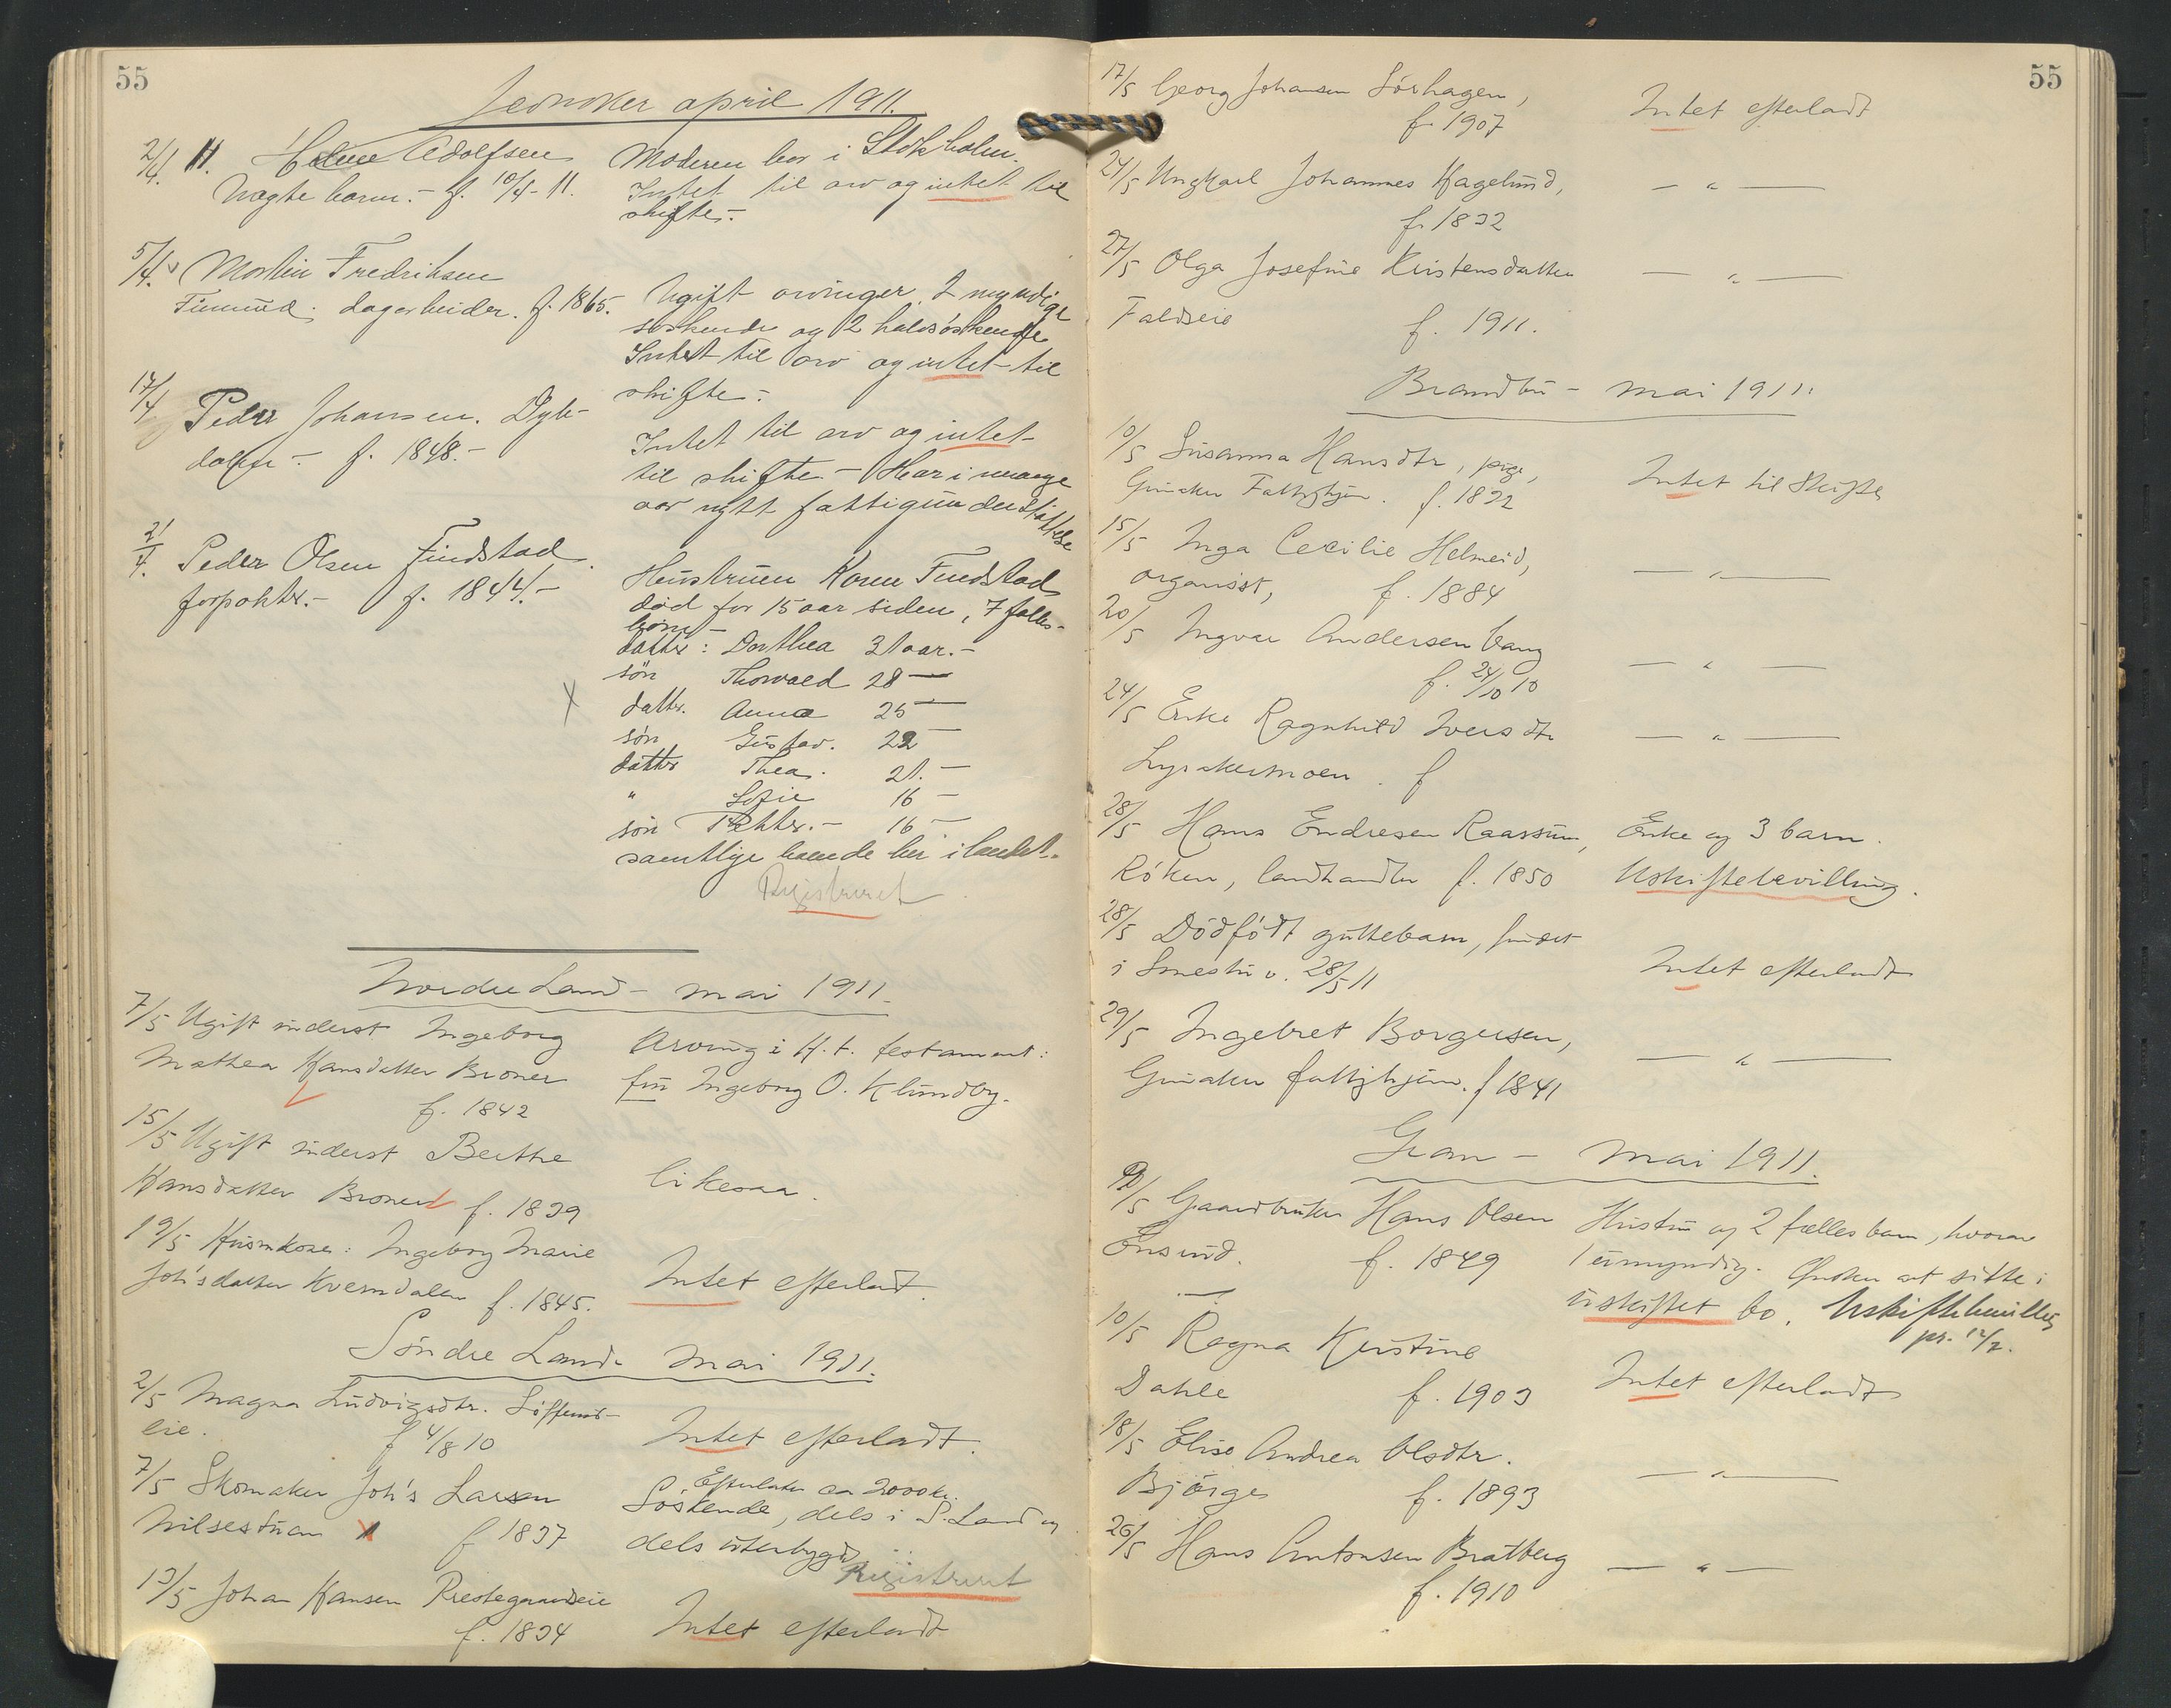 55
Jevnaker april 1911.
2/4. 11. Adolfsen
Moderen bor i Stokholm.
Uægte barn. - f. 10/4 - 11.
Intet til arv og intet til
skifte. -
5/4. Fredriksen
dagarbeider. f. 1865.
Ugift arvinger 2 myndige
søskende og 2 halvsøskende
Intet til arv og intet til
skifte. -
17/4 Peder Johansen. Dyb-
dalen - f. 1848. -
Intet til arv og intet
til skifte - Har i mange
aar nytt fattigunderstøttelse
21/4. Peder Olsen Findstad
forpakter. - f. 1844. -
Hustruen Karen Findstad
død for 15 aar siden, 7 fælles-
børn -
datter: Dorthea 31 aar. -
søn Thorvald 28 —
datter. Anna 25 —
søn Gustav. 22 —
datter Thea. 21. —
" Sofie 16 —
søn 16 —
samtlige boende her i landet.
Registreret
Nordre Land - mai 1911.
7/5 Ugift inderst Ingeborg
Mathea Hansdatter Broner
f. 1842
Arving i H. t. testament:
fru Ingeborg O. Klundby.
15/5 Ugift inderst Berthe
Hansdatter Broner f. 1839
likesaa.
19/5 Ingeborg Marie
Joh's datter Kverndalen f. 1845.
Intet efterladt.
Søndre Land. mai 1911.
2/5 Magna Ludvigsdtr.
eie. f 4/8 10
Intet efterladt.
7/5 Skomaker Joh's Larsen
Nilsestuen f 1837
Efterlater ca 2000 kr.
Søskende, dels i S. Land og
dels utenbygds
Registreret
13/5 Johan Hansen Prestegaardseie
f. 1834
Intet efterladt
55
17/5 Georg Johansen Sørhagen,
f. 1907
Intet efterladt
24/5 Ungkarl Johannes Hagelund,
f. 1832
— " —
27/5 Olga Josefine Kristensdatter
Faldseie
f. 1911.
— " —
Brandbu - mai 1911.
10/5 Susanna Hansdtr, pige,
Fattighjem. f. 1832
Intet til skifte
15/5 Inga Cecilie Helmeid,
organist, f. 1884
— " —
20/5 Ingvar Andersen Vang
f. 24/10 10
— " —
24/5 Enke Ragnhild Iversdtr
Lysakermoen. f
— " —
28/5 Hans Endresen Raassum,
Røken, landhandler f. 1850
Enke og 3 barn.
Uskiftebevilling.
28/5 Dødfødt guttebarn, fundet
i Smestu v. 28/5 11
Intet efterladt
29/5 Ingebret Borgersen,
fattighjem. f 1841
— " —
Gran - mai 1911.
/5 Gaardbruker Hans Olsen
f. 1849
Hustru og 2 fælles barn, hvorav
1 umyndig. Ønsker at sitte i
uskiftet bo. Uskiftebevilling
pr. 12/7.
10/5 Ragna Kristine
Dahle f. 1903
Intet efterladt
18/5 Elise Andrea Olsdtr.
Bjørge f. 1893
— " —
26/5 Hans Antonsen Bratberg
f. 1910
— " —